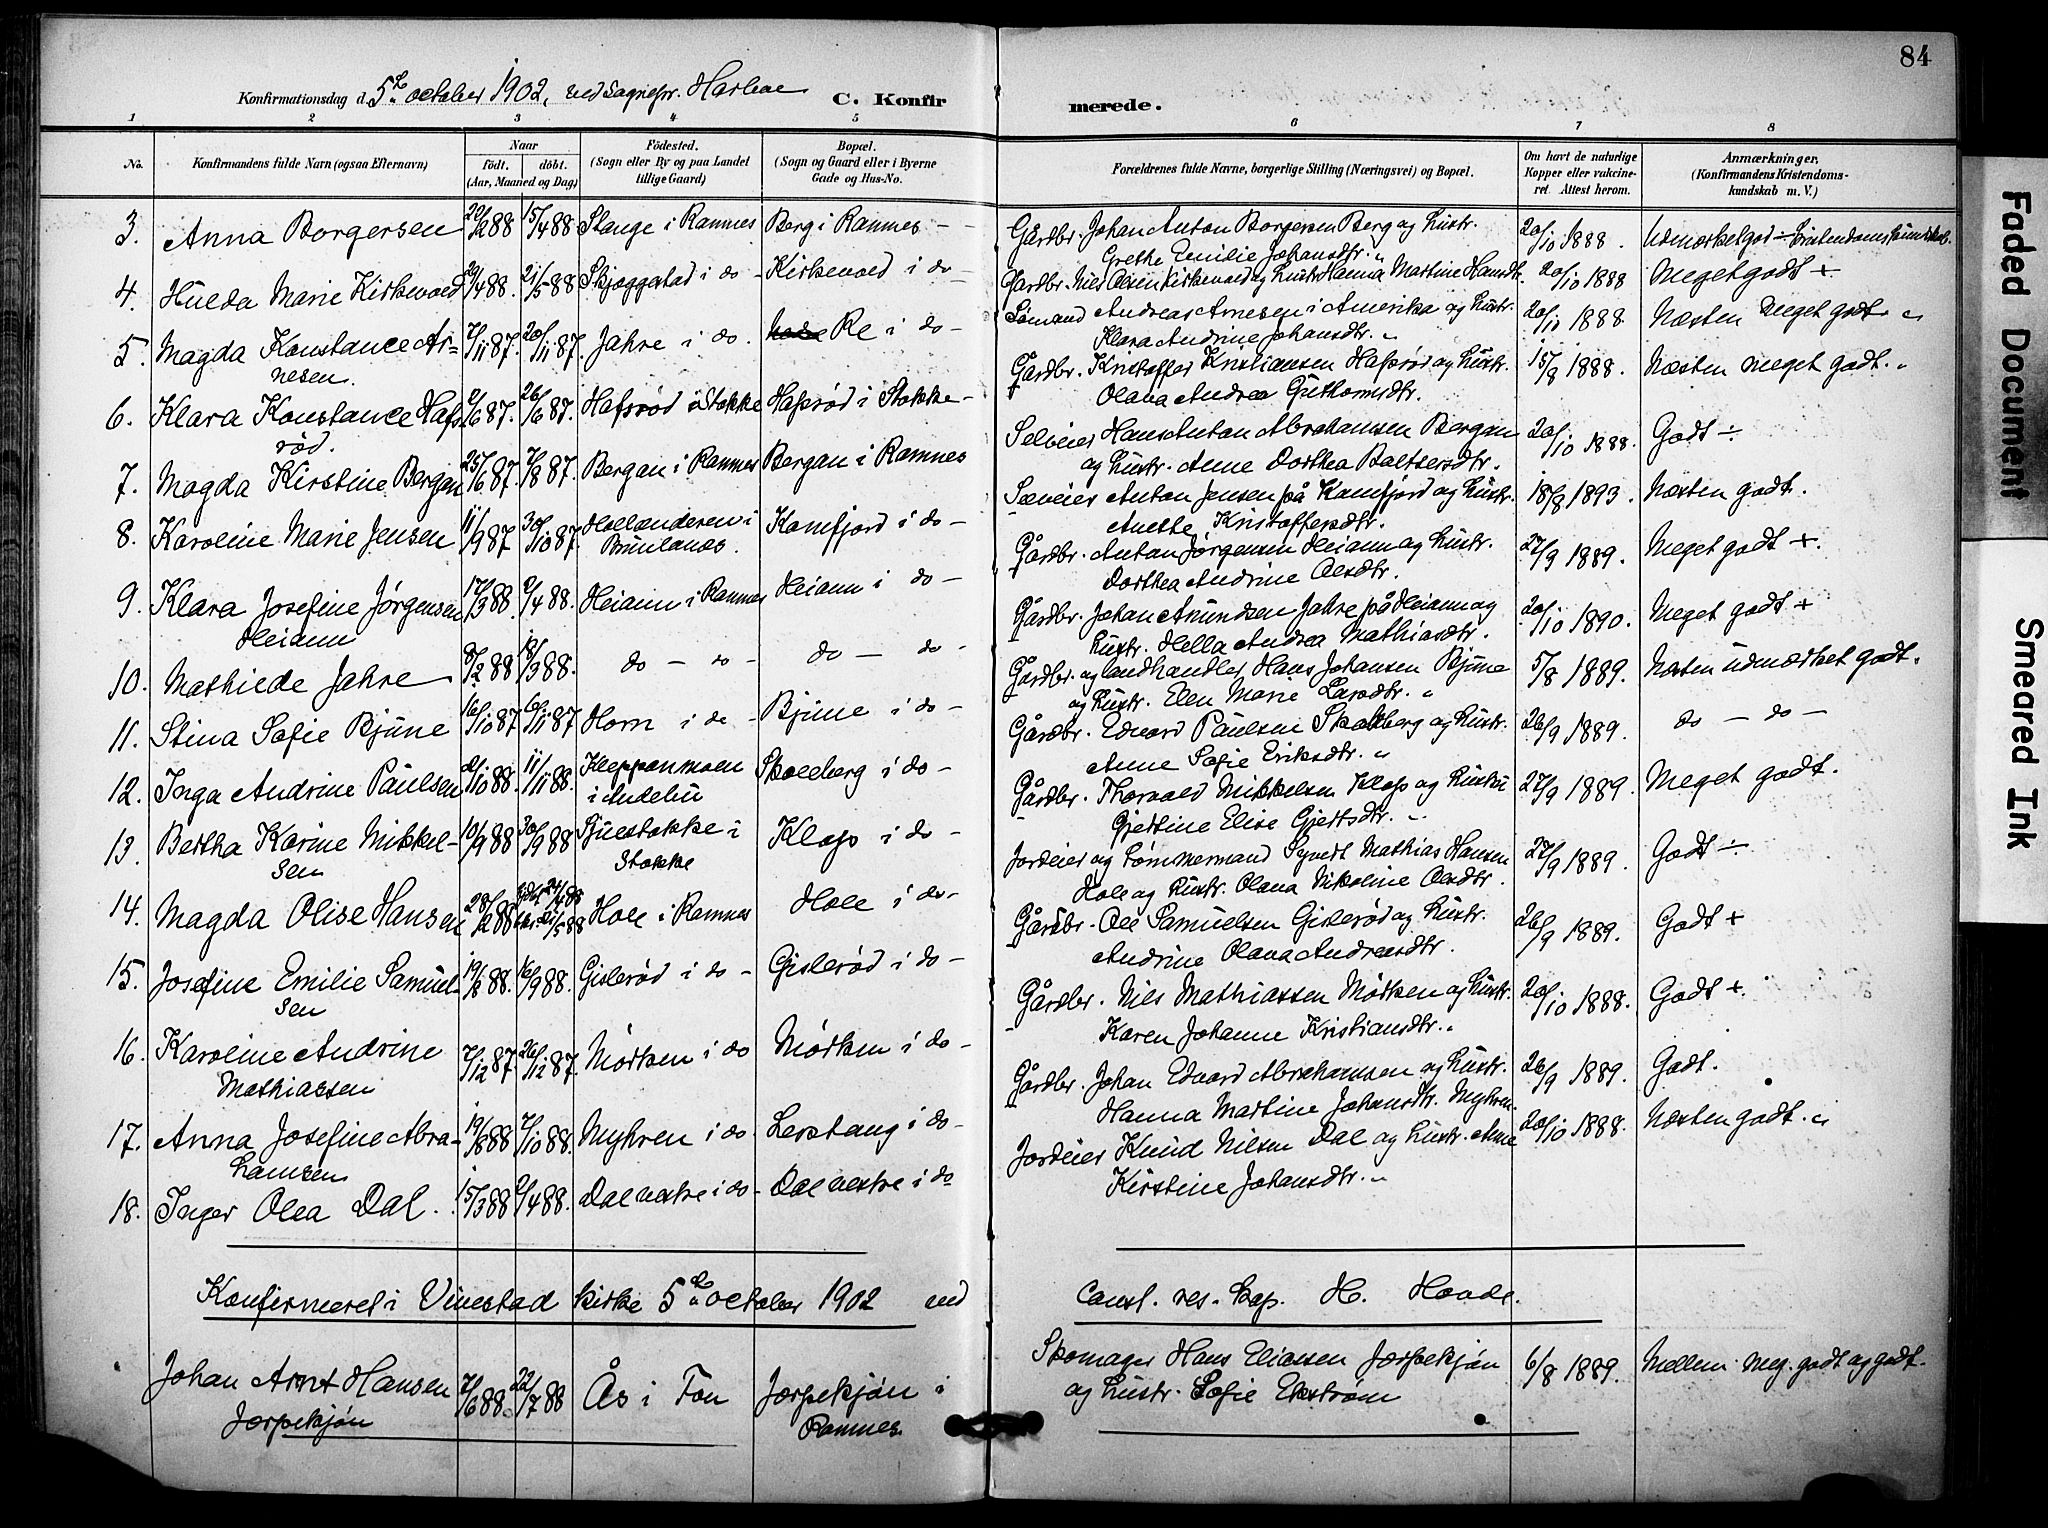 84
Konfirmationsdag d. 5te october 1902, ved sognepr. Harboe C. Konfir merede.
1 2 3 4 5 6 7 8
No. Konfirmandens fulde Navn (ogsaa Efternavn) Naar født. døbt. (Aar, Maaned og Dag) Fødested. (Sogn eller By og paa Landet tillige Gaard) Bopæl. (Sogn og Gaard eller i Byerne Gade og Hus-No. Forældrenes fulde Navne, borgerlige Stilling (Næringsvei) og Bopæl. Om havt de naturlige Kopper eller vakcineret. Attest herom. Anmærkninger, (Konfirmandens Kristendomskundskab m. V.)
3. Anna Borgersen 29/2 88 15/4 88 Stange i Ramnes Berg i Ramnes - Gårdbr. Johan Anton Borgersen Berg og hustr. 20/10 1888. Udmærket god ÷ kristendomskundskab.
Grethe Emilie Johansdtr. "
4. Hulda Marie Kirkevold 29/4 88. 21/5 88 Skjeggestad i do - Kirkevold i do - Gårdbr. Nils Olsen Kirkevold og hustr. Hanna Martine Hansdt. 20/10 1888 Meget godt +
5. Magda Konstance Ar- 7/11 87. 20/11 87. Jahre i do. Re i do - Sømand Andreas Arnesen i Amerika og hustr. 20/10 1888. Næsten meget godt. "
nesen. Klara Andrine Johansdtr. "
6. Klara Konstance Hafs 2/6 87. 26/6 87. Hafsrød i Stokke Hafsrød i Stokke - Gårdbr. Kristoffer Kristiansen Hafsrød og hustr. 15/8 1888. Næsten meget godt. "
rød. Olava Andrea Guthormsdtr.
7. Magda Kirstine Bergan 25/6 87. 7/8 87. Bergan i Ramnes Bergan i Ramnes Selveier Hans Anton Abrahamsen Bergan 20/10 1888. Godt ÷
og hustr. Anne Dorthea Baltsersdtr.
8. Karoline Marie Jensen 11/9 87 30/10 87. Hollenderen i Kamfjord i do - Sæveier Anton Jensen på Kamfjord og hustr. 18/8 1893. Næsten godt.
Brunlanes. Anette Kristoffersdtr.
9. Klara Josefine Jørgensen 17/3 88. 2/4 88. Heiann i Ramnes Heiann i do - Gårdbr. Anton Jørgensen Heiann og hustr. 27/9 1889. Meget godt +.
Heiann Dorthea Andrine Olsdtr.
10. Mathilde Jahre 8/2 88 18/3 88. do - do - do - do - Gårdbr. Johan Amundsen Jahre på Heiann og 20/10 1890. Meget godt +
hustr. Hella Andrea Mathiasdtr.
11. Stina Sofie Bjune 16/10 87 6/11 87 Horn i do - Bjune i do - Gårdbr. og landhandler Hans Johansen Bjune 5/8 1889. Næsten udmærket godt.
og hustr. Elen Marie Larsdtr. "
12. Inga Andrine Paulsen /10 88. 11/11 88. Kleppanmoen Skoleberg i do - Gårdbr. Edvard Paulsen Skoleberg og hustr. 26/9 1889. do - do -
i Andebu Anne Sofie Eriksdtr. "
13. Bertha Karine Mikkel- 10/9 88 30/9 88 Sjuestokke i Klop i do - Gårdbr. Thorvald Mikkelsen Klop og hustru 27/9 1889. Meget godt.
sen Stokke Gjertine Elise Gjertsdtr. "
14. Magda Olise Hansen 28/2 88 24/4 88 21/5 88 Hole i Ramnes Hole i do - Jordeier og tømmermand Syvert Mathias Hansen 27/9 1889. Godt ÷
Hole og hustr. Olava Nikoline Olsdtr.
15. Josefine Emilie Samuel- 19/8 88. 16/9 88. Gislerød i do - Gislerød i do - Gårdbr. Ole Samuelsen Gislerød og hustr. 26/9 1889. Godt +
sen Andrine Olava Andreasdtr.
16. Karoline Andrine 7/12 87. 26/12 87. Mørken i do Mørken i do - Gårdbr. Nils Mathiassen Mørken og hustr. 20/10 1888. Godt +.
Mathiassen Karen Johanne Kristiansdtr. "
17. Anna Josefine Abra- 19/8 88 7/10 88. Myhren i do Lerstang i do - Gårdbr. Johan Edvard Abrahamsen og hustr. 26/9 1889. Godt.
hamsen Hanna Martine Johansdtr. Myhren.
18. Inger Olea Dal. 15/3 88 2/4 88. Dal vestre i do - Dal vestre i do Jordeier Knud Nilsen Dal og hustr. Anne 20/10 1888. Næsten godt. "
Kirstine Johansdtr. "
Konfirmeret i Vivestad kirke 5te october 1902 ved const. res. kap. H. Hoode.
Johan Arnt Hansen 7/6 88. 22/7 88 Ås i Fon Jerpekjøn i Skomager Hans Eliassen Jerpekjøn 6/8 1889. Mellem meg. godt og godt.
Jerpekjøn Ramnes. og hustr. Sofie Ekstrøm
Faded Document
Smeared Ink